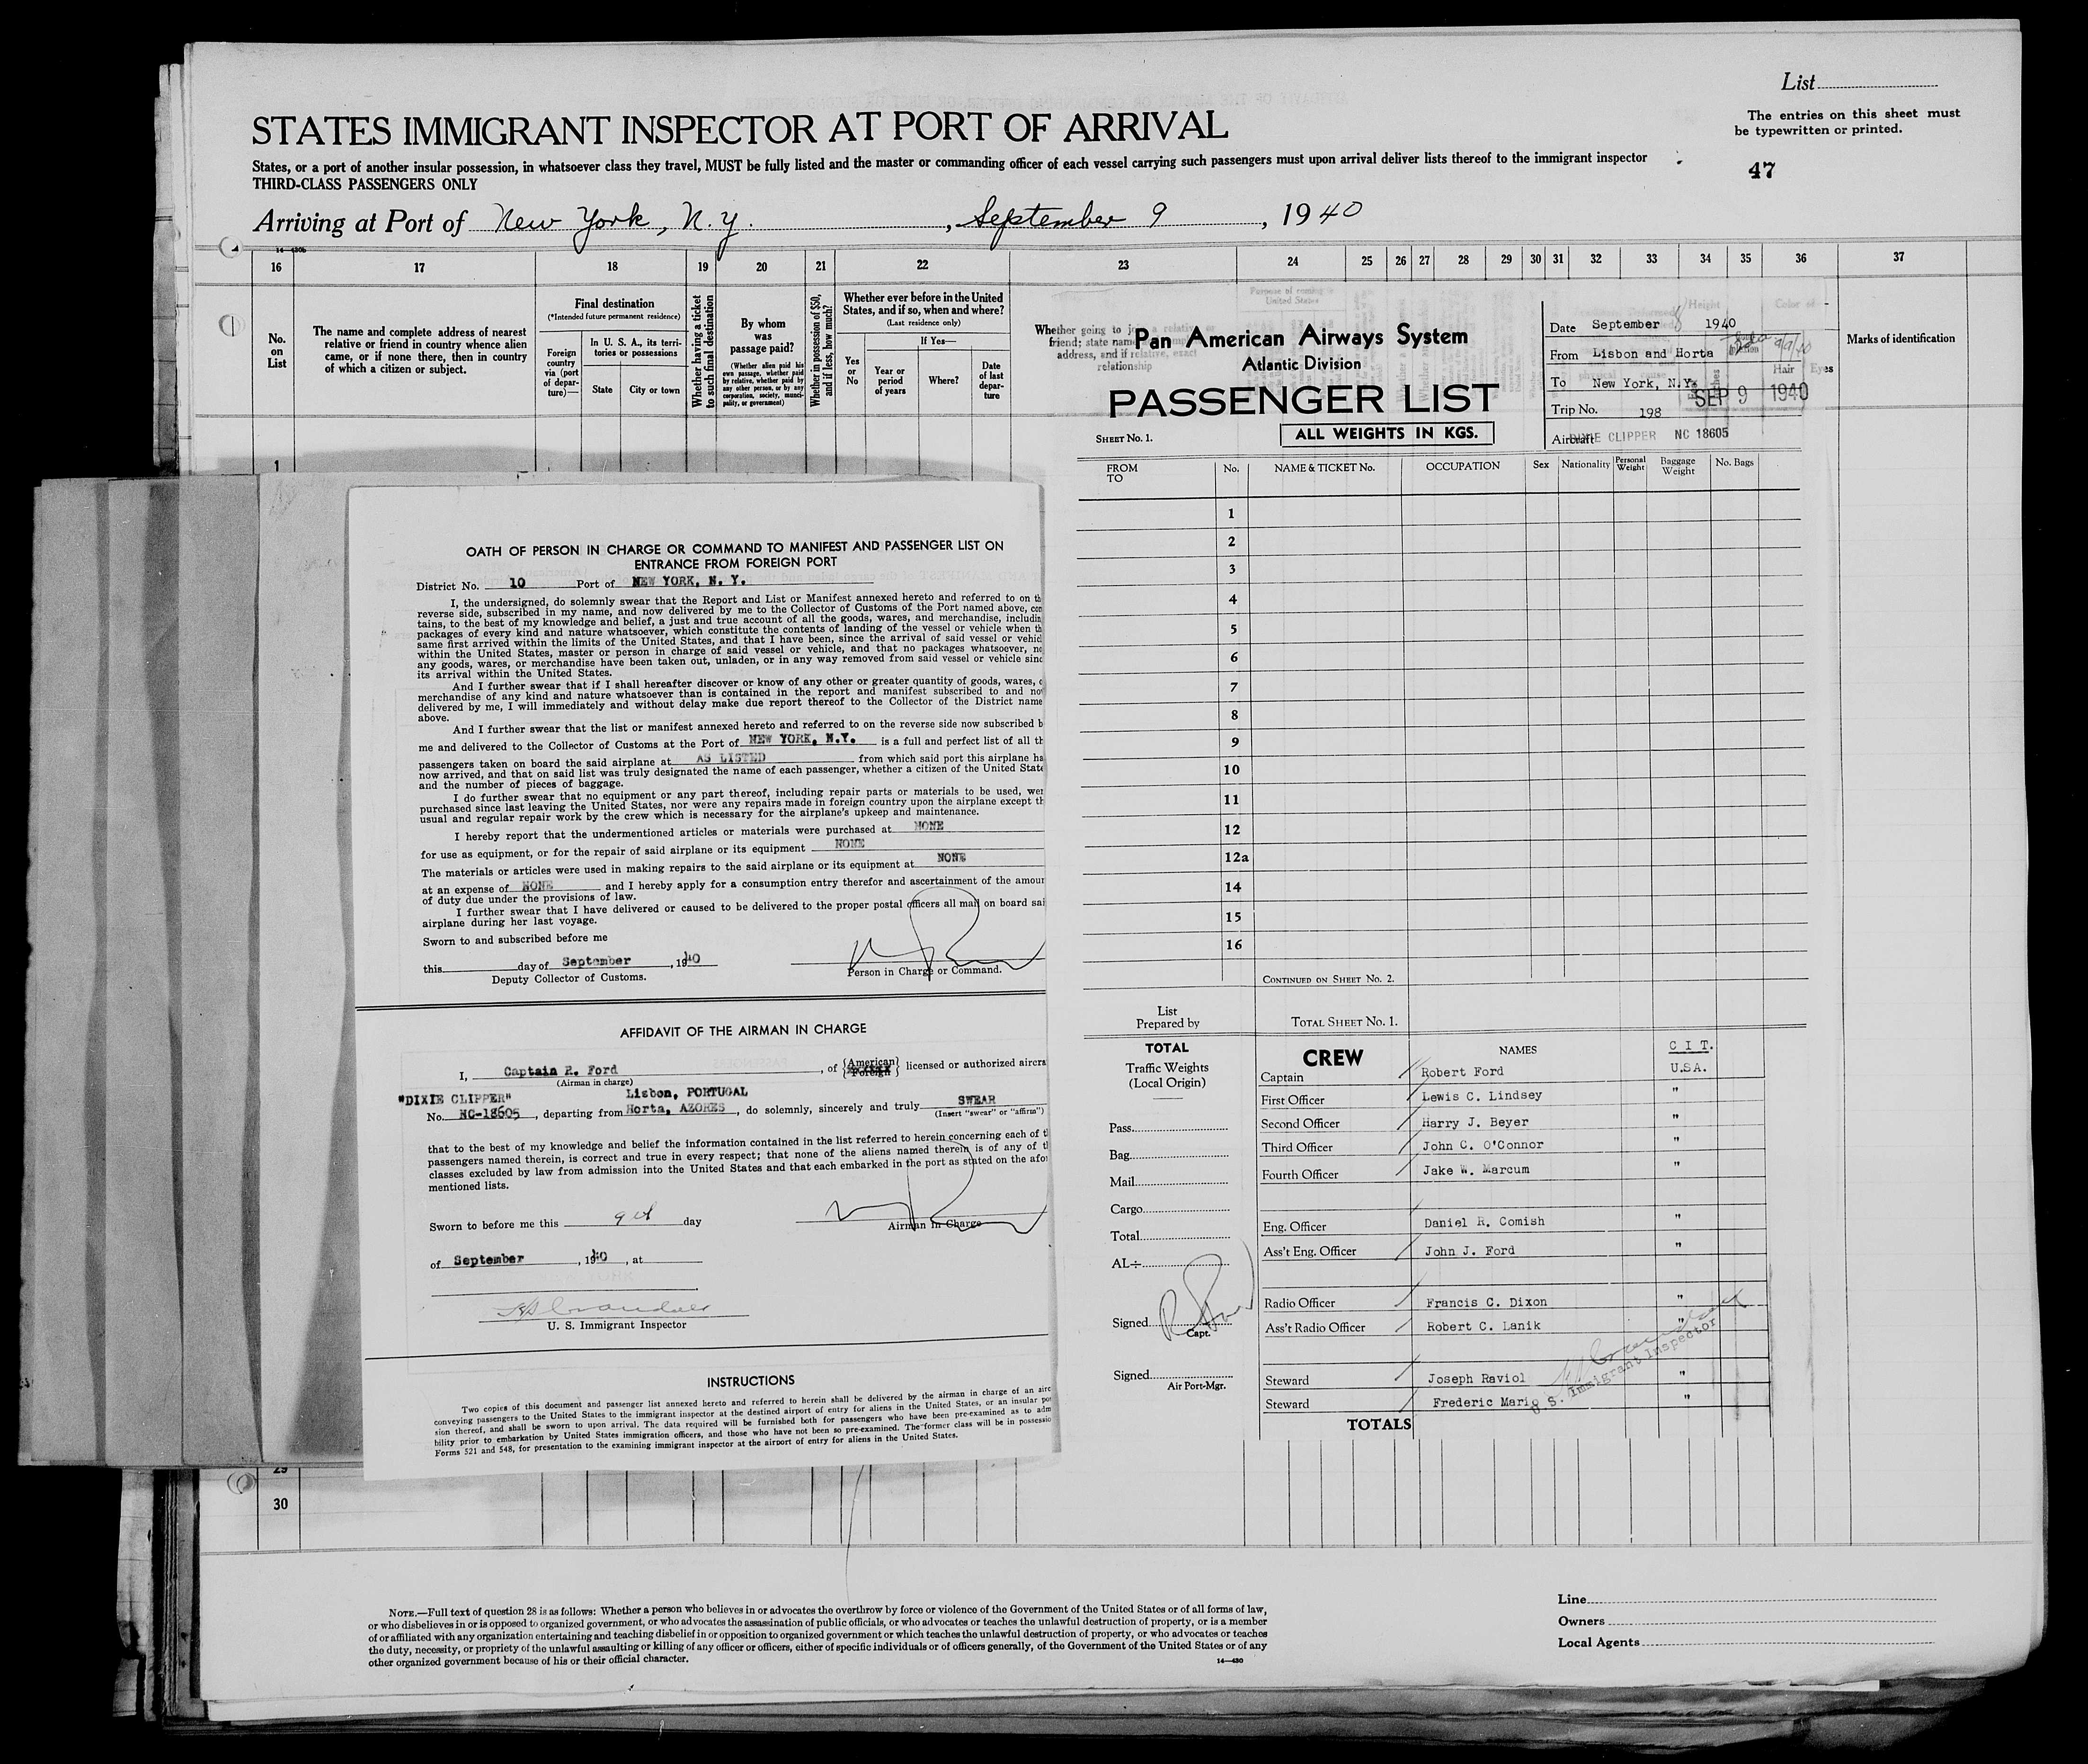 List
The entries on this sheet must
be typewritten or printed.
47
STATES IMMIGRANT INSPECTOR AT PORT OF ARRIVAL
States, or a port of another insular possession, in whatsoever class they travel, MUST be fully listed and the master or commanding officer of each vessel carrying such passengers must upon arrival deliver lists thereof to the immigrant inspector
THIRD-CLASS PASSENGERS ONLY
Arriving at Port of New York, N.Y. , September 9, 1940
16 17 18 19 20 21 22 23 24 25 26 27 28 29 30 31 32 33 34 35 36 37
No.
on
List
The name and complete address of nearest
relative or friend in country whence alien
came, or if none there, then in country
of which a citizen or subject.
Final destination
(*Intended future permanent residence)
Foreign
country
via (port
of depar-
ture)—
In U. S. A., its terri-
tories or possessions
State
City or town
Whether having a ticket
to such final destination
By whom
was
passage paid?
(Whether alien paid his
own passage, whether paid
by relative, whether paid by
any other person, or by any
corporation, society, munici-
pality, or government)
Whether in possession of $50,
and if less, how much?
Whether ever before in the United
States, and if so, when and where?
(Last residence only)
Yes
or
No
If Yes—
Year or
period
of years
Where?
Date
of last
depar-
ture
Marks of identification
1
OATH OF PERSON IN CHARGE OR COMMAND TO MANIFEST AND PASSENGER LIST ON
ENTRANCE FROM FOREIGN PORT
District No. 10 Port of NEW YORK, N. Y.
I, the undersigned, do solemnly swear that the Report and List or Manifest annexed hereto and referred to on th
reverse side, subscribed in my name, and now delivered by me to the Collector of Customs of the Port named above, con
tains, to the best of my knowledge and belief, a just and true account of all the goods, wares, and merchandise, includin
packages of every kind and nature whatsoever, which constitute the contents of landing of the vessel or vehicle when th
same first arrived within the limits of the United States, and that I have been, since the arrival of said vessel or vehicl
within the United States, master or person in charge of said vessel or vehicle, and that no packages whatsoever, no
any goods, wares, or merchandise have been taken out, unladen, or in any way removed from said vessel or vehicle sinc
its arrival within the United States.
And I further swear that if I shall hereafter discover or know of any other or greater quantity of goods, wares, o
merchandise of any kind and nature whatsoever than is contained in the report and manifest subscribed to and now
delivered by me, I will immediately and without delay make due report thereof to the Collector of the District name
above.
And I further swear that the list or manifest annexed hereto and referred to on the reverse side now subscribed b
me and delivered to the Collector of Customs at the Port of NEW YORK, N.Y. is a full and perfect list of all th
passengers taken on board the said airplane at AS LISTED from which said port this airplane ha
now arrived, and that on said list was truly designated the name of each passenger, whether a citizen of the United State
and the number of pieces of baggage.
I do further swear that no equipment or any part thereof, including repair parts or materials to be used, wer
purchased since last leaving the United States, nor were any repairs made in foreign country upon the airplane except th
usual and regular repair work by the crew which is necessary for the airplane's upkeep and maintenance.
I hereby report that the undermentioned articles or materials were purchased at NONE
for use as equipment, or for the repair of said airplane or its equipment NONE
The materials or articles were used in making repairs to the said airplane or its equipment at NONE
at an expense of NONE and I hereby apply for a consumption entry therefor and ascertainment of the amoun
of duty due under the provisions of law.
I further swear that I have delivered or caused to be delivered to the proper postal officers all mail on board sai
airplane during her last voyage.
Sworn to and subscribed before me
this day of September, 1940
Deputy Collector of Customs.
Person in Charge or Command.
AFFIDAVIT OF THE AIRMAN IN CHARGE
I, Captain R. Ford, of {American Foreign} licensed or authorized aircra
(Airman in charge)
"DIXIE CLIPPER" Lisbon, PORTUGAL
No. NC-18605, departing from Horta, AZORES, do solemnly, sincerely and truly SWEAR
(Insert "swear" or "affirm")
that to the best of my knowledge and belief the information contained in the list referred to herein concerning each of t
passengers named therein, is correct and true in every respect; that none of the aliens named therein is of any of t
classes excluded by law from admission into the United States and that each embarked in the port as stated on the afor
mentioned lists.
Sworn to before me this 9th day
Airman in Charge
of September, 1940, at
U. S. Immigrant Inspector
INSTRUCTIONS
Two copies of this document and passenger list annexed hereto and referred to herein shall be delivered by the airman in charge of an airc
conveying passengers to the United States to the immigrant inspector at the destined airport of entry for aliens in the United States, or an insular pos
sion thereof, and shall be sworn to upon arrival. The data required will be furnished both for passengers who have been pre-examined as to adm
bility prior to embarkation by United States immigration officers, and those who have not been so pre-examined. The former class will be in possessio
Forms 521 and 548, for presentation to the examining immigrant inspector at the airport of entry for aliens in the United States.
Pan American Airways System
Atlantic Division
PASSENGER LIST
SHEET No. 1.
ALL WEIGHTS IN KGS.
Date September 1940
From Lisbon and Horta
To New York, N.Y.
SEP 9 1940
Trip No. 198
Aircraft DIXIE CLIPPER NC 18605
FROM
TO
No.
NAME & TICKET No.
OCCUPATION
Sex
Nationality
Personal
Weight
Baggage
Weight
No. Bags
1
2
3
4
5
6
7
8
9
10
11
12
12a
14
15
16
CONTINUED ON SHEET No. 2.
List
Prepared by
TOTAL SHEET No. 1.
TOTAL
Traffic Weights
(Local Origin)
Pass.
Bag.
Mail
Cargo
Total
AL÷
Signed
Capt.
Signed
Air Port-Mgr.
CREW NAMES C I T.
Captain Robert Ford U.S.A.
First Officer Lewis C. Lindsey "
Second Officer Harry J. Beyer "
Third Officer John C. O'Connor "
Fourth Officer Jake W. Marcum "
Eng. Officer Daniel R. Comish "
Ass't Eng. Officer John J. Ford "
Radio Officer Francis C. Dixon "
Ass't Radio Officer Robert C. Lanik "
Steward Joseph Raviol "
Steward Frederic Mario "
U. S. Immigrant Inspector
TOTALS
29
30
NOTE.—Full text of question 28 is as follows: Whether a person who believes in or advocates the overthrow by force or violence of the Government of the United States or of all forms of law,
or who disbelieves in or is opposed to organized government, or who advocates the assassination of public officials, or who advocates or teaches the unlawful destruction of property, or is a member
of or affiliated with any organization entertaining and teaching disbelief in or opposition to organized government or which teaches the unlawful destruction of property, or who advocates or teaches
the duty, necessity, or propriety of the unlawful assaulting or killing of any officer or officers, either of specific individuals or of officers generally, of the Government of the United States or of any
other organized government because of his or their official character.
14—430
Line
Owners
Local Agents